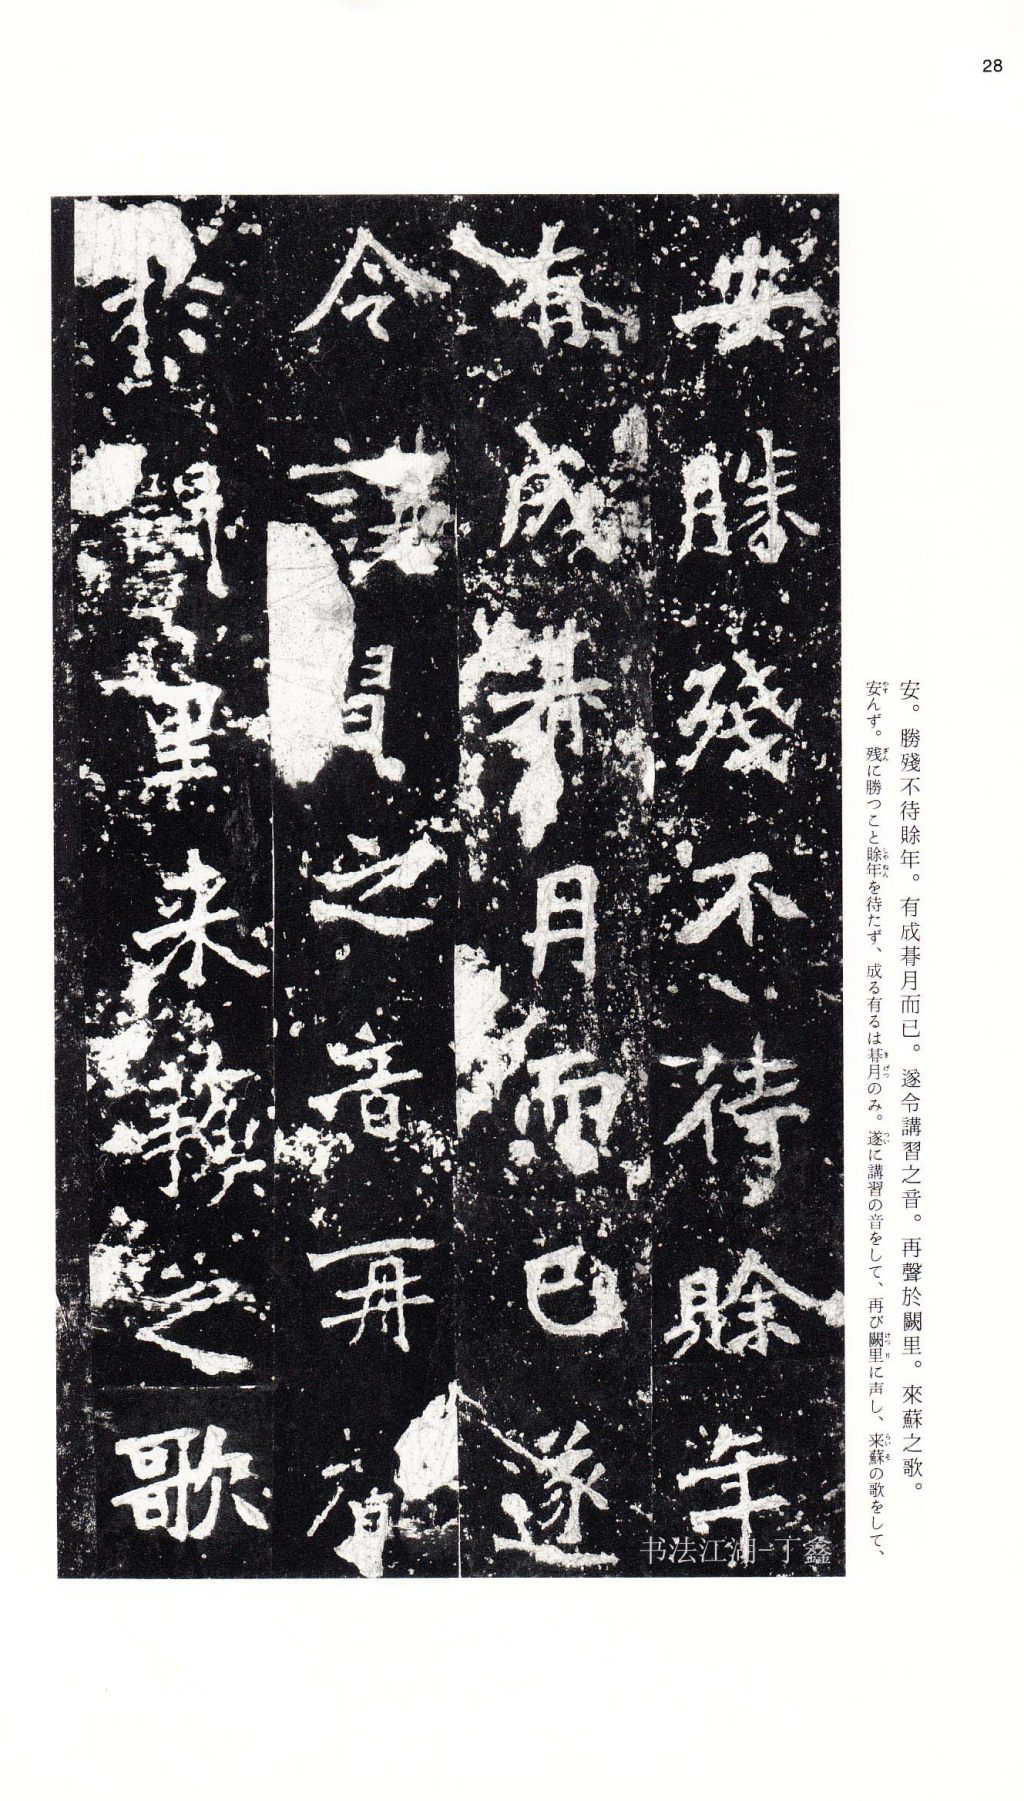 28
安。勝殘不待賒年。有成朞月而已。遂令講習之音。再聲於闕里。來蘇之歌。
安んず。残に勝つこと賒年を待たず、成る有るは朞月のみ。遂に講習の音をして、再び闕里に声し、来蘇の歌をして、
安勝殘不待賒年
有成朞月而已遂
令講習之音再聲
於闕里来蘇之歌
书法江湖-丁鑫